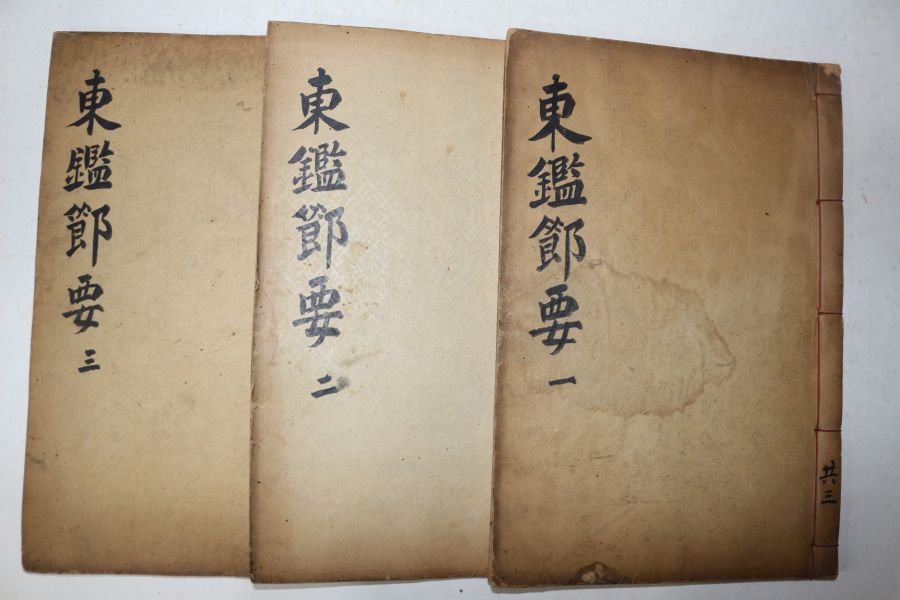 東鑑節要 一
共三
東鑑節要 二
東鑑節要 三